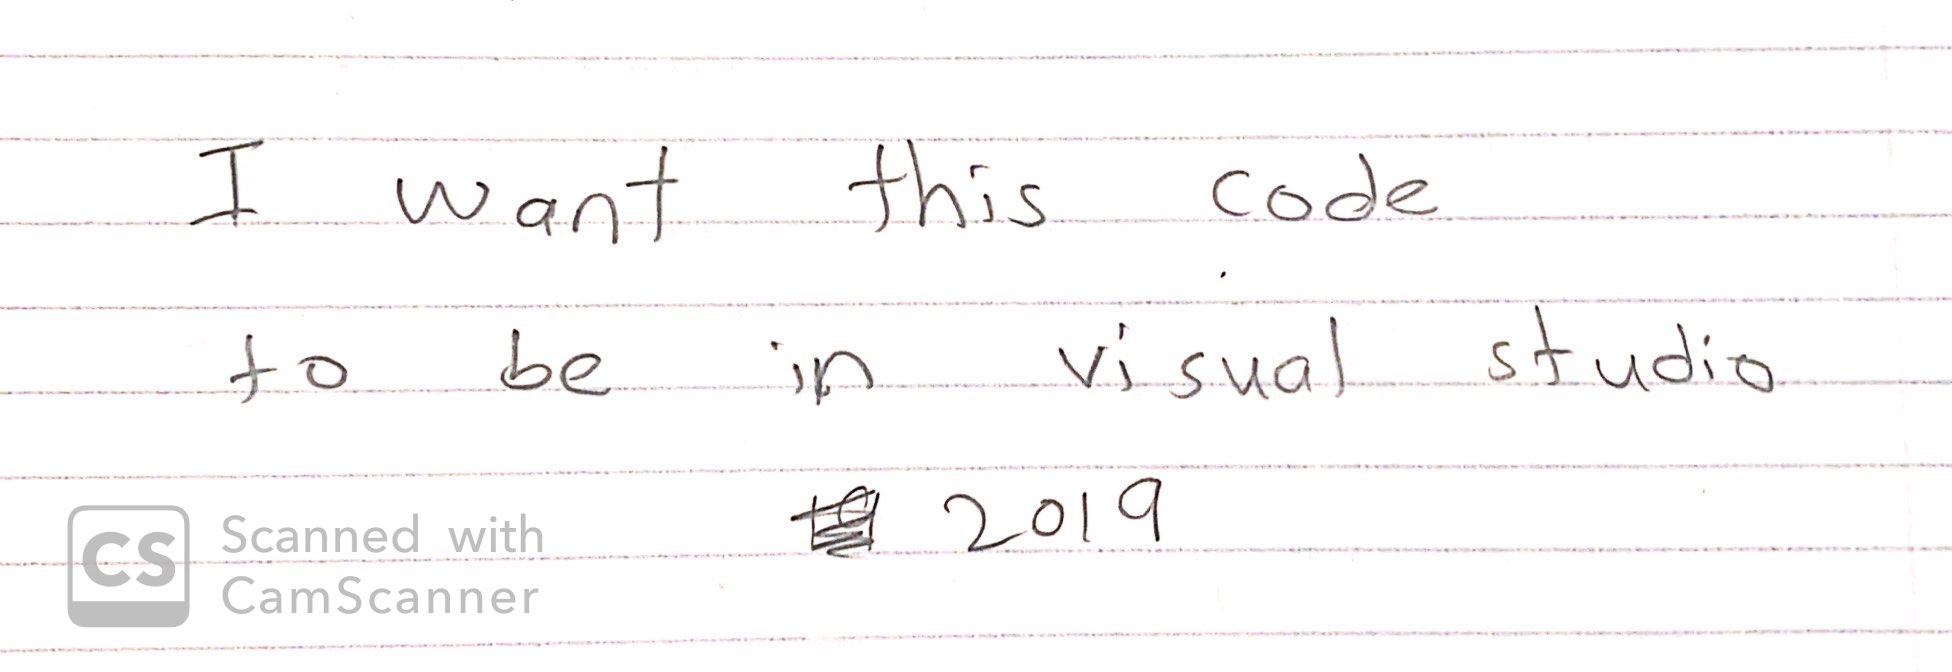 I want this code
to be in visual studio
2019
Scanned with
CamScanner